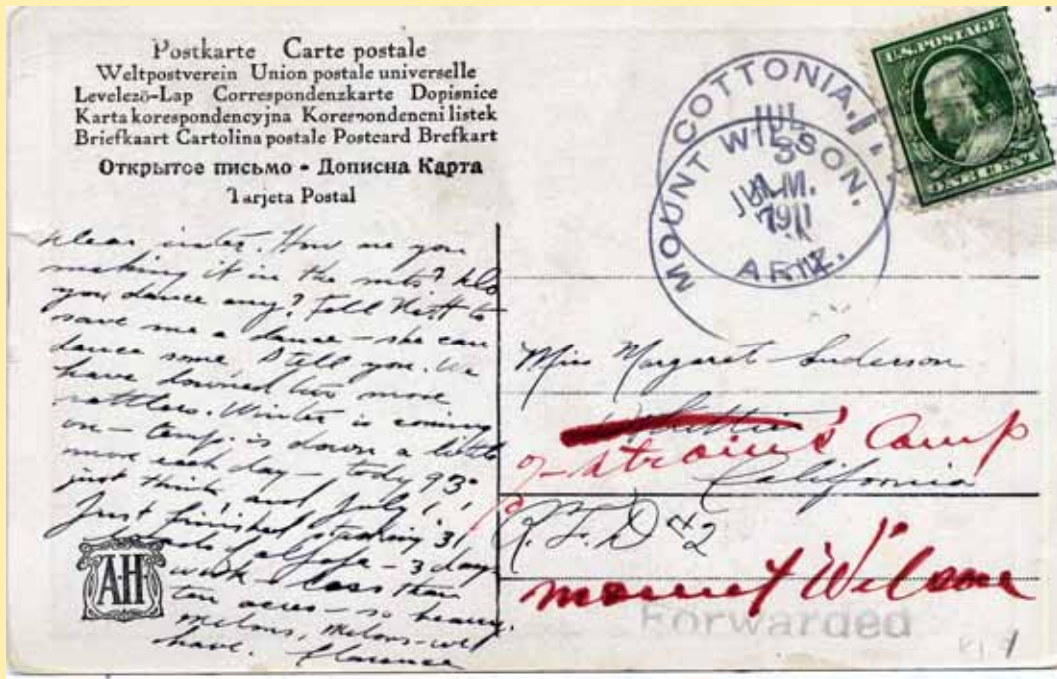 Postkarte Carte postale
Weltpostverein Union postale universelle
Levelező-Lap Correspondenzkarte Dopisnice
Karta korespondencyjna Korespondencni listek
Briefkaart Cartolina postale Postcard Brefkart
Открытое письмо - Дописна Карта
Tarjeta Postal
COTTONIA
MOUNT WILSON.
JUL
3
JUL
7
1911
A.M.
ARIZ.
U.S. POSTAGE
ONE CENT
Dear sister. How are you
making it in the mts? Do
you dance any? Tell to
save me a dance - she can
dance some I tell you. We
have downed two more
rattlers. Winter is coming
on - temp. is down a little
more each day - today 93°
just think, and July 1,
Just finished stacking 31
loads of alfafa - 3 days
work - less than
ten acres - so heavy.
Melons, melons - we
have. Clarence
AH
Miss Margaret Anderson
Whittier
Strain's Camp
California
R.F.D #2
Mount Wilson
Forwarded